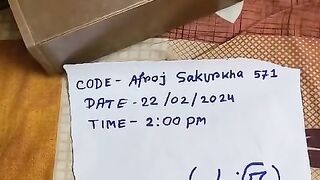 CODE - Afroj Sakurkha 571
DATE - 22/02/2024
TIME - 2:00 PM